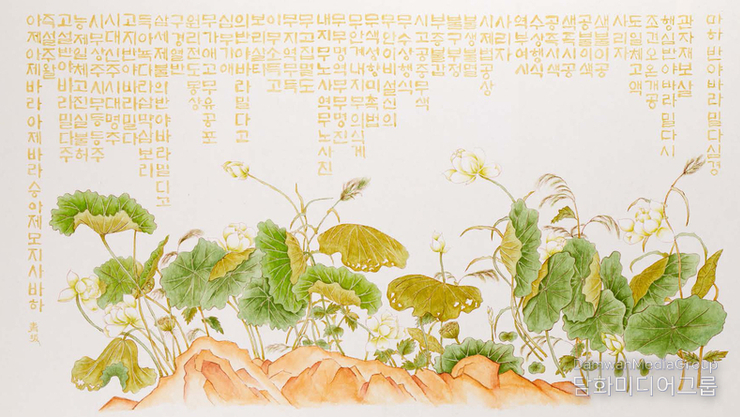 마하반야바라밀다심경
관자재보살
행심반야바라밀다시
조견오온개공
도일체고액
사리자
색불이공
공불이색
색즉시공
공즉시색
수상행식
역부여시
사리자
시제법공상
불생불멸
불구부정
부증불감
시고공중무색
무수상행식
무안이비설신의
무색성향미촉법
무안계내지무의식계
무무명역무무명진
내지무노사역무노사진
무고집멸도
무지역무득
이무소득고
보리살타
의반야바라밀다고
심무가애
무가애고무유공포
원리전도몽상
구경열반
삼세제불의반야바라밀다고
득아뇩다라삼막삼보리
고지반야바라밀다
시대신주시대명주
시무상주시무등등주
능제일체고진실불허
고설반야바라밀다주
즉설주왈
아제바라아제바라승아제모지사바하
DamwhanMediaGroup
담화미디어그룹